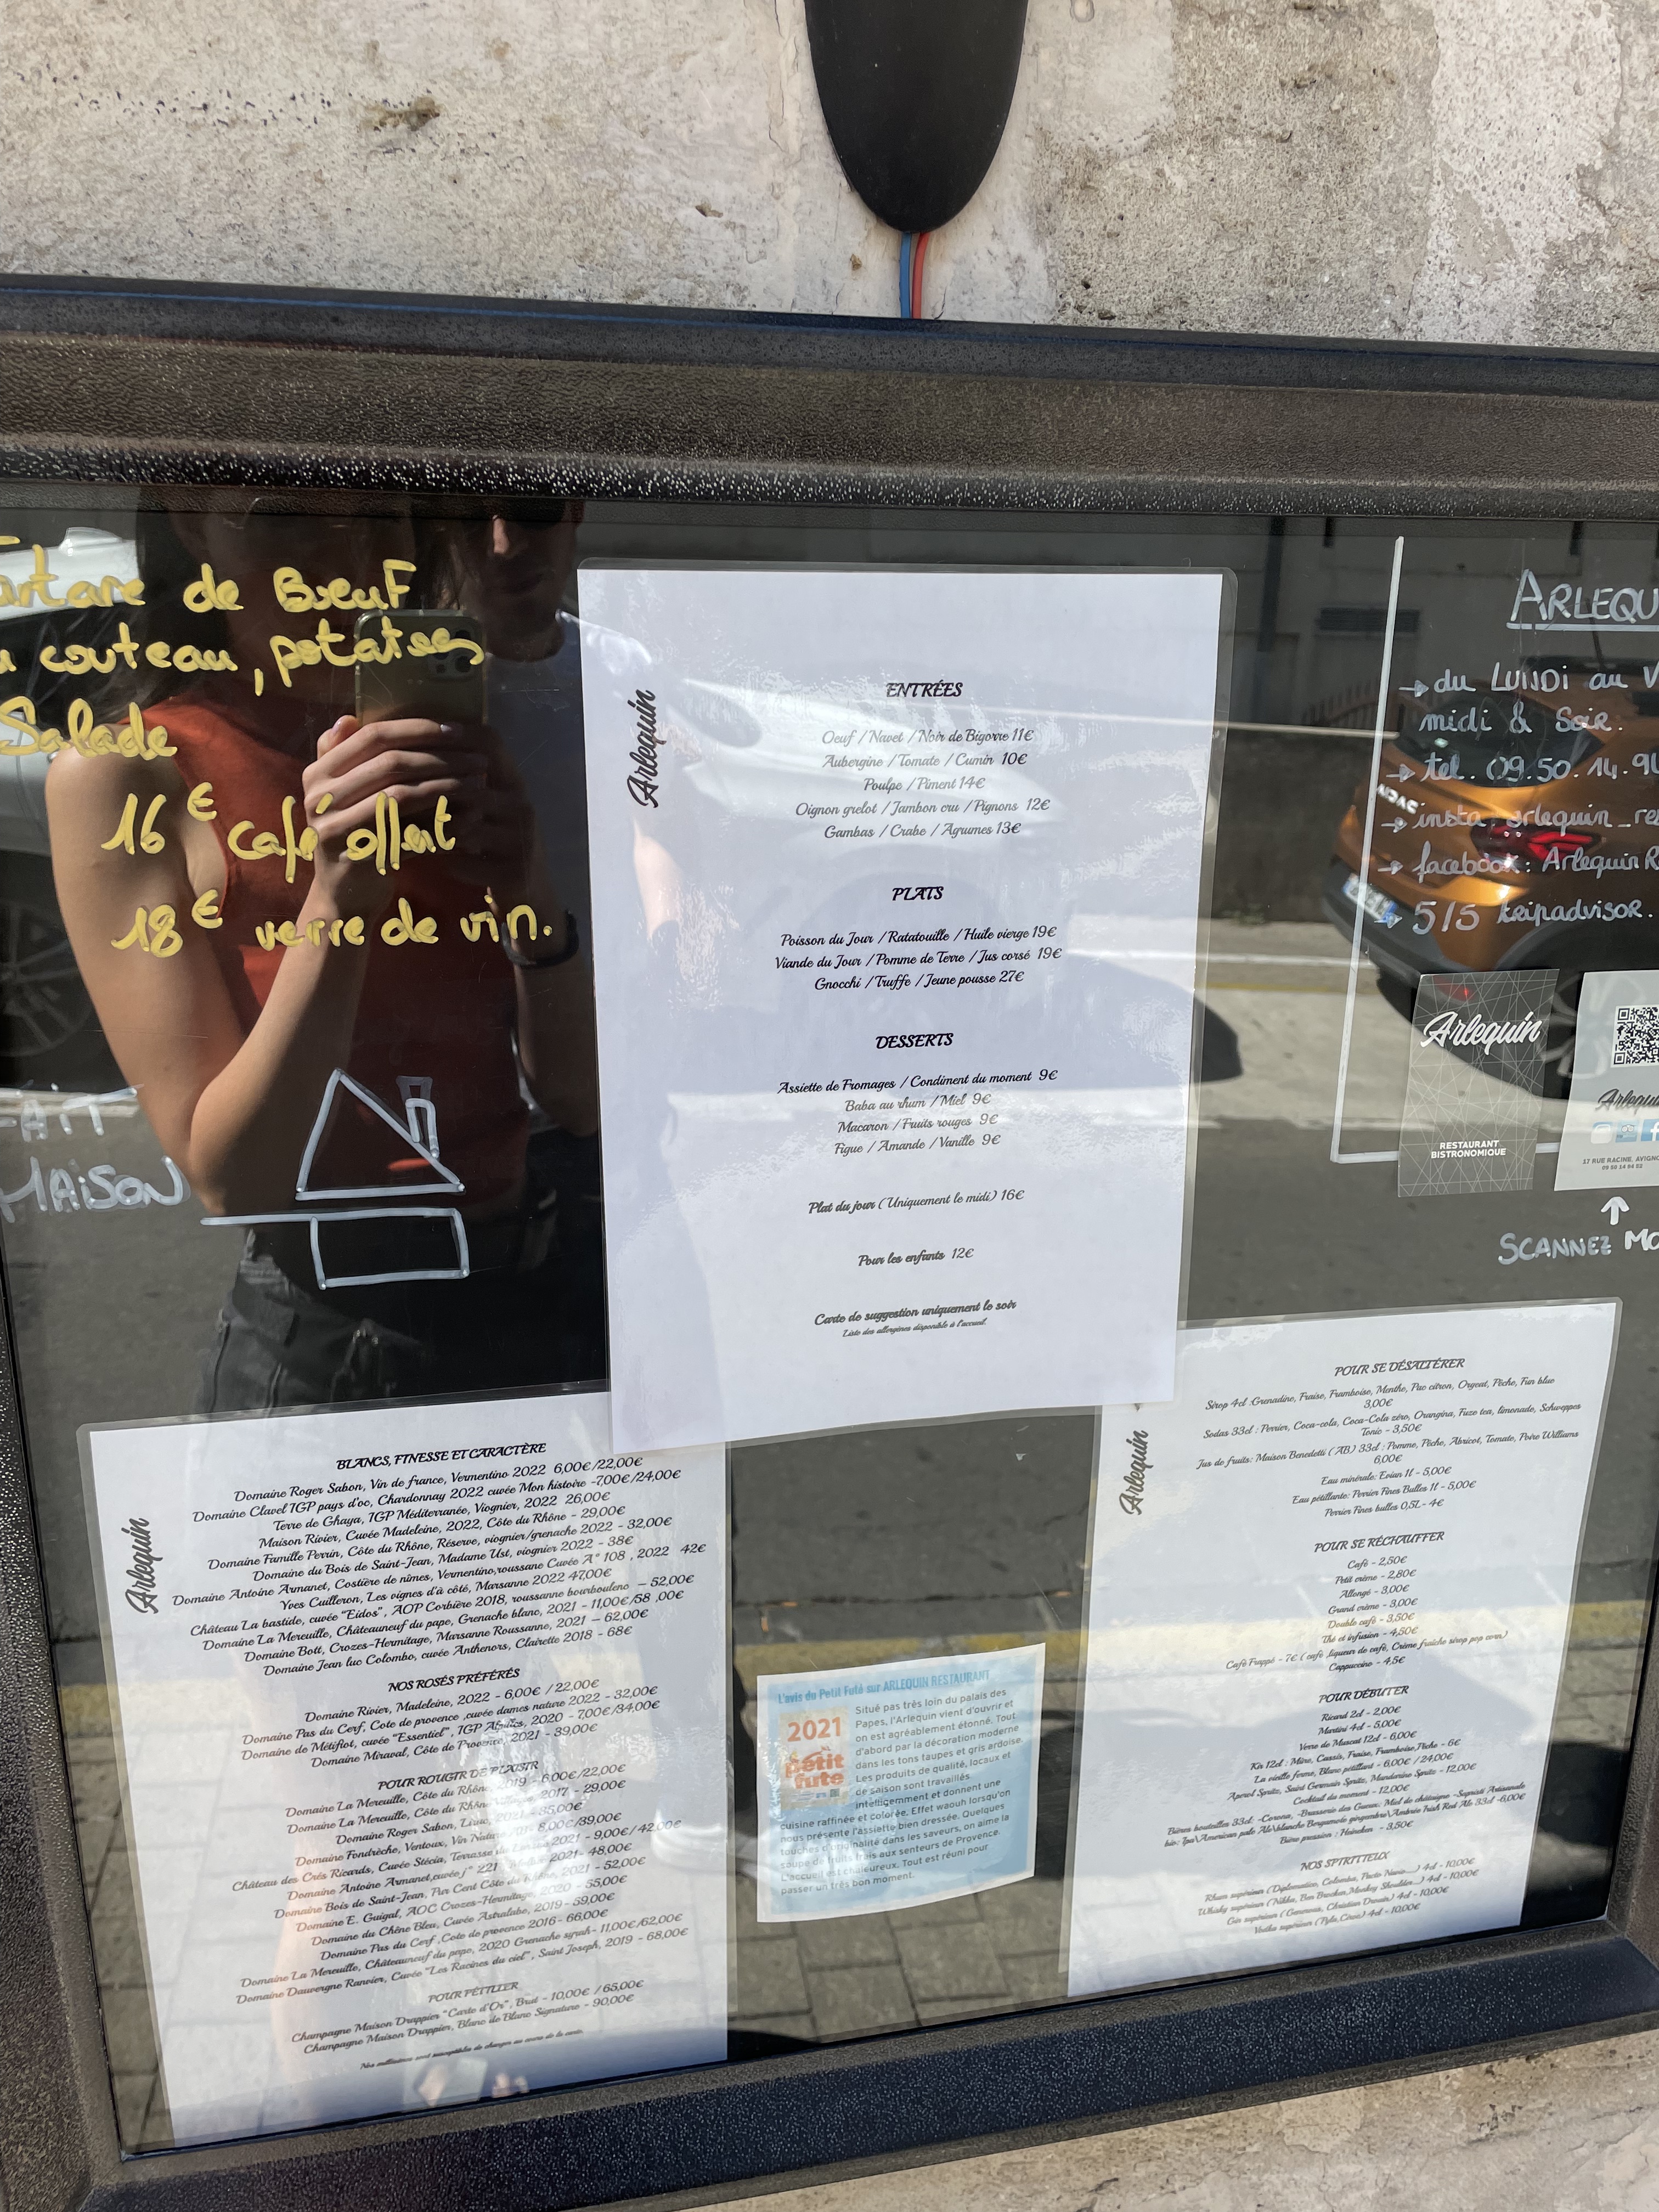 artare de Bœuf
u couteau, potatoes
Salade
16€ café offert
18€ verre de vin.
FAIT
MAISON
Arlequin
ENTRÉES
Oeuf / Navet / Noir de Bigorre 11€
Aubergine / Tomate / Cumin 10€
Poulpe / Piment 14€
Oignon grelot / Jambon cru / Pignons 12€
Gambas / Crabe / Agrumes 13€
PLATS
Poisson du Jour / Ratatouille / Huile vierge 19€
Viande du Jour / Pomme de Terre / Jus corsé 19€
Gnocchi / Truffe / Jeune pousse 27€
DESSERTS
Assiette de Fromages / Condiment du moment 9€
Baba au rhum / Miel 9€
Macaron / Fruits rouges 9€
Figue / Amande / Vanille 9€
Plat du jour (Uniquement le midi) 16€
Pour les enfants 12€
Carte de suggestion uniquement le soir
Liste des allergènes disponible à l'accueil.
ARLEQU
→ du LUNDI au V
midi & Soir.
→ tel. 09.50.14.94
→ insta: arlequin_re
→ facebook: Arlequin R
→ 5/5 tripadvisor.
Arlequin
RESTAURANT
BISTRONOMIQUE
Arlequi
17 RUE RACINE, AVIGNO
09 50 14 94 02
SCANNEZ MO
Arlequin
BLANCS, FINESSE ET CARACTÈRE
Domaine Roger Sabon, Vin de france, Vermentino 2022 6,00€/22,00€
Domaine Clavel IGP pays d'oc, Chardonnay 2022 cuvée Mon histoire -7,00€/24,00€
Terre de Ghaya, IGP Méditerranée, Viognier, 2022 26,00€
Maison Rivier, Cuvée Madeleine, 2022, Côte du Rhône - 29,00€
Domaine Famille Perrin, Côte du Rhône, Réserve, viognier/grenache 2022 - 32,00€
Domaine du Bois de Saint-Jean, Madame Ust, viognier 2022 - 38€
Domaine Antoine Armanet, Costière de nîmes, Vermentino,roussane Cuvée A" 108 , 2022 42€
Yves Cuilleron, Les vignes d'à côté, Marsanne 2022 47,00€
Château La bastide, cuvée "Eidos", AOP Corbière 2018, roussanne bourbouleno - 52,00€
Domaine La Mereuille, Châteauneuf du pape, Grenache blanc, 2021 - 11,00€/58 ,00€
Domaine Bott, Crozes-Hermitage, Marsanne Roussanne, 2021 - 62,00€
Domaine Jean luc Colombo, cuvée Anthenors, Clairette 2018 - 68€
NOS ROSÉS PRÉFÉRÉS
Domaine Rivier, Madeleine, 2022 - 6,00€ / 22,00€
Domaine Pas du Cerf, Cote de provence ,cuvée dames nature 2022 - 32,00€
Domaine de Métifiot, cuvée "Essentiel", IGP Alpilles, 2020 - 7,00€/34,00€
Domaine Miraval, Côte de Provence, 2021 - 39,00€
POUR ROUGIR DE PLAISIR
Domaine La Mereuille, Côte du Rhône 2019 - 6,00€/22,00€
Domaine La Mereuille, Côte du Rhône 2017 - 29,00€
Domaine Roger Sabon, 2021 - 35,00€
Domaine Fondrèche, Ventoux, Vin Nature 8,00€/39,00€
Château des Crés Ricards, Cuvée Stécia, Terrasse du 2021 - 9,00€/ 42,00€
Domaine Antoine Armanet,cuvée j" 221 2021- 48,00€
Domaine Bois de Saint-Jean, Pur Cent Côte du 2021 - 52,00€
Domaine E. Guigal, AOC Crozes-Hermitage 2020 - 55,00€
Domaine du Chêne Bleu, Cuvée Astralabe, 2019 - 59,00€
Domaine Pas du Cerf ,Cote de provence 2016 - 66,00€
Domaine La Mereuille, Châteauneuf du pape, 2020 Grenache syrah - 11,00€/62,00€
Domaine Dauvergne Ranvier, Cuvée "Les Racines du ciel", Saint Joseph, 2019 - 68,00€
POUR PÉTILLER
Champagne Maison Drappier "Carte d'Or", Brut - 10,00€ / 65,00€
Champagne Maison Drappier, Blanc de Blanc Signature - 90,00€
Nos millésimes sont susceptibles de changer au cours de la carte.
L'avis du Petit Futé sur ARLEQUIN RESTAURANT
2021
petit
futé
Situé pas très loin du palais des
Papes, l'Arlequin vient d'ouvrir et
on est agréablement étonné. Tout
d'abord par la décoration moderne
dans les tons taupes et gris ardoise.
Les produits de qualité, locaux et
de saison sont travaillés
intelligemment et donnent une
cuisine raffinée et colorée. Effet waouh lorsqu'on
nous présente l'assiette bien dressée. Quelques
touches d'originalité dans les saveurs, on aime la
soupe de fruits frais aux senteurs de Provence.
L'accueil est chaleureux. Tout est réuni pour
passer un très bon moment.
Arlequin
POUR SE DÉSALTÉRER
Sirop 4cl :Grenadine, Fraise, Framboise, Menthe, Pac citron, Orgeat, Pêche, Fun blue
3,00€
Sodas 33cl : Perrier, Coca-cola, Coca-Cola zéro, Orangina, Fuze tea, limonade, Schweppes
Tonic - 3,50€
Jus de fruits: Maison Benedetti ( AB) 33cl : Pomme, Pêche, Abricot, Tomate, Poire Williams
6,00€
Eau minérale: Evian 1l - 5,00€
Eau pétillante: Perrier Fines Bulles 1l - 5,00€
Perrier Fines bulles 0,5L - 4€
POUR SE RÉCHAUFFER
Café - 2,50€
Petit crème - 2,80€
Allongé - 3,00€
Grand crème - 3,00€
Double café - 3,50€
Thé et infusion - 4,50€
Café Frappé - 7€ ( café ,liqueur de café, Crème fraîche sirop pop corn)
Cappuccino - 4,5€
POUR DÉBUTER
Ricard 2cl - 2,00€
Martini 4cl - 5,00€
Verre de Muscat 12cl - 6,00€
Kir 12cl : Mûre, Cassis, Fraise, Framboise,Pêche - 6€
La vieille ferme, Blanc pétillant - 6,00€ / 24,00€
Aperol Spritz, Saint Germain Spritz, Mandarine Spritz - 12,00€
Cocktail du moment - 12,00€
Bières bouteilles 33cl -Corona, -Brasserie des Gueux: Miel de châtaigne -Sapristi Artisanale
bio: Ipa\American pale Ale\blanche Bergamote gingembre\Ambrée Irish Red Ale 33cl -6,00€
Bière pression : Heineken - 3,50€
NOS SPIRITUEUX
Rhum supérieur (Diplomatico, Colombo, ) 4cl - 10,00€
Whisky supérieur (Nikka, Monkey Shoulder...) 4cl - 10,00€
Gin supérieur ( Christian Drouin) 4cl - 10,00€
Vodka supérieur ( ) 4cl - 10,00€